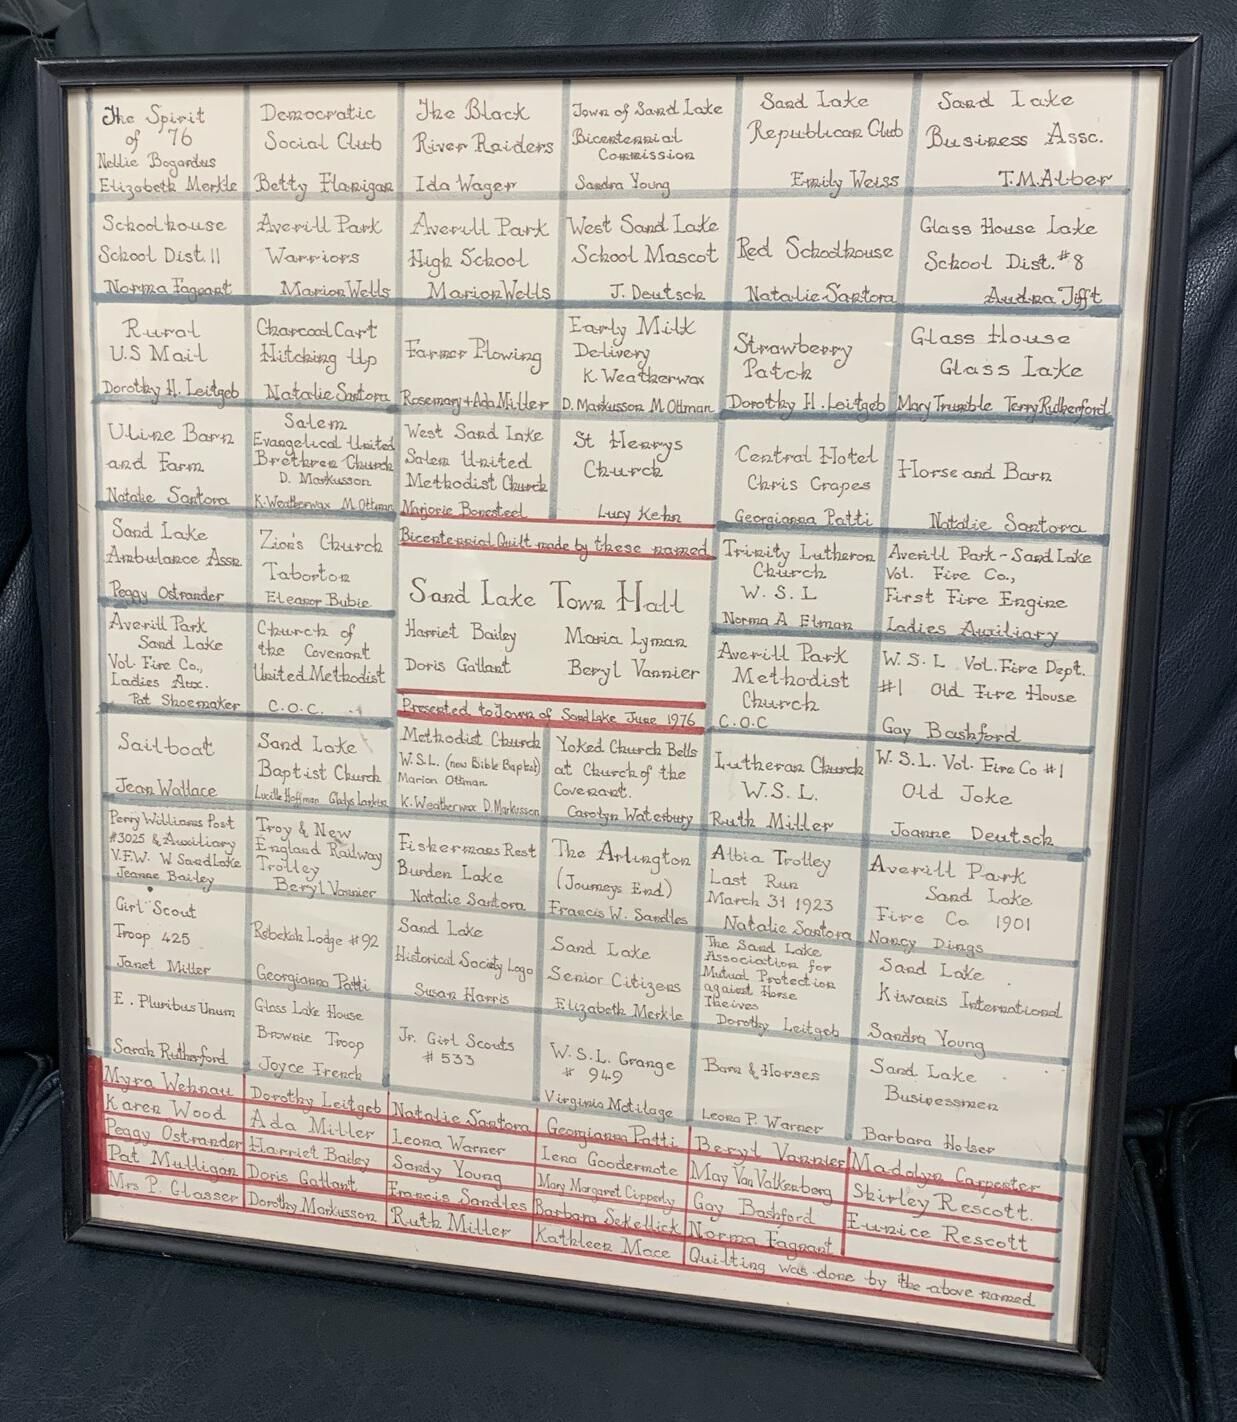 The Spirit
of 76
Nellie Bogardus
Elizabeth Merkle
Democratic
Social Club
Betty Flanigan
The Black
River Raiders
Ida Wager
Town of Sand Lake
Bicentennial
Commission
Sandra Young
Sand Lake
Republican Club
Emily Weiss
Sand Lake
Business Assc.
T.M.Alber
Schoolhouse
School Dist. 11
Norma Fagnant
Averill Park
Warriors
Marion Wells
Averill Park
High School
Marion Wells
West Sand Lake
School Mascot
J. Deutsch
Red Schoolhouse
Natalie Santora
Glass House Lake
School Dist. #8
Audra Tifft
Rural
U.S Mail
Dorothy H. Leitgeb
Charcoal Cart
Hitching Up
Natalie Santora
Farmer Plowing
Rosemary + Ada Miller
Early Milk
Delivery
K. Weatherwax
D. Markusson M. Ottman
Strawberry
Patch
Dorothy H. Leitgeb
Glass House
Glass Lake
Mary Trumble Terry Rutherford
Uline Barn
and Farm
Natalie Santora
Salem
Evangelical United
Brethren Church
D. Markusson
K. Weatherwax M. Ottman
West Sand Lake
Salem United
Methodist Church
Marjorie Bonesteel
St Henrys
Church
Lucy Kehn
Central Hotel
Chris Crapes
Georgianna Patti
Horse and Barn
Natalie Santora
Sand Lake
Ambulance Assn.
Peggy Ostrander
Zion's Church
Taborton
Eleanor Bubie
Bicentennial Quilt made by these named
Sand Lake Town Hall
Harriet Bailey Maria Lyman
Doris Gallant Beryl Vannier
Presented to Town of Sand Lake June 1976
Trinity Lutheran
Church
W. S. L
Norma A Elman
Averill Park - Sand Lake
Vol. Fire Co.,
First Fire Engine
Ladies Auxiliary
Averill Park
Sand Lake
Vol. Fire Co.,
Ladies Aux.
Pat Shoemaker
Church of
the Covenant
United Methodist
C.O.C.
Averill Park
Methodist
Church
C.O.C
W.S.L Vol. Fire Dept.
#1 Old Fire House
Gay Bashford
Sailboat
Jean Wallace
Sand Lake
Baptist Church
Lucille Hoffman Gladys Larkin
Methodist Church
W.S.L. (now Bible Baptist)
Marion Ottman
K. Weatherwax D. Markusson
Yoked Church Bells
at Church of the
Covenant.
Carolyn Waterbury
Lutheran Church
W.S.L.
Ruth Miller
W.S.L. Vol. Fire Co #1
Old Joke
Joanne Deutsch
Perry Williams Post
#3025 & Auxiliary
V.F.W. W SandLake
Jeanne Bailey
Troy & New
England Railway
Trolley
Beryl Vannier
Fishermans Rest
Burden Lake
Natalie Santora
The Arlington
(Journeys End)
Francis W. Sandles
Albia Trolley
Last Run
March 31 1923
Natalie Santora
Averill Park
Sand Lake
Fire Co. 1901
Nancy Dings
Girl Scout
Troop 425
Janet Miller
Rebekah Lodge #92
Georgianna Patti
Sand Lake
Historical Society Logo
Susan Harris
Sand Lake
Senior Citizens
Elizabeth Merkle
The Sand Lake
Association for
Mutual Protection
against Horse
Theives
Dorothy Leitgeb
Sand Lake
Kiwanis International
Sandra Young
E. Pluribus Unum
Sarah Rutherford
Glass Lake House
Brownie Troop
Joyce French
Jr. Girl Scouts
# 533
W.S.L. Grange
# 949
Virginia Motilage
Barn & Horses
Leona P. Warner
Sand Lake
Businessmen
Barbara Holser
Myra Wehnau
Karen Wood
Peggy Ostrander
Pat Mulligan
Mrs P. Glasser
Dorothy Leitgeb
Ada Miller
Harriet Bailey
Doris Gallant
Dorothy Markusson
Natalie Santora
Leona Warner
Sandy Young
Francis Sandles
Ruth Miller
Georgianna Patti
Lena Goodermote
Mary Margaret Cipperly
Barbara Sekellick
Kathleen Mace
Beryl Vannier
May Van Valkenberg
Gay Bashford
Norma Fagnant
Madolyn Carpenter
Shirley Rescott.
Eunice Rescott
Quilting was done by the above named